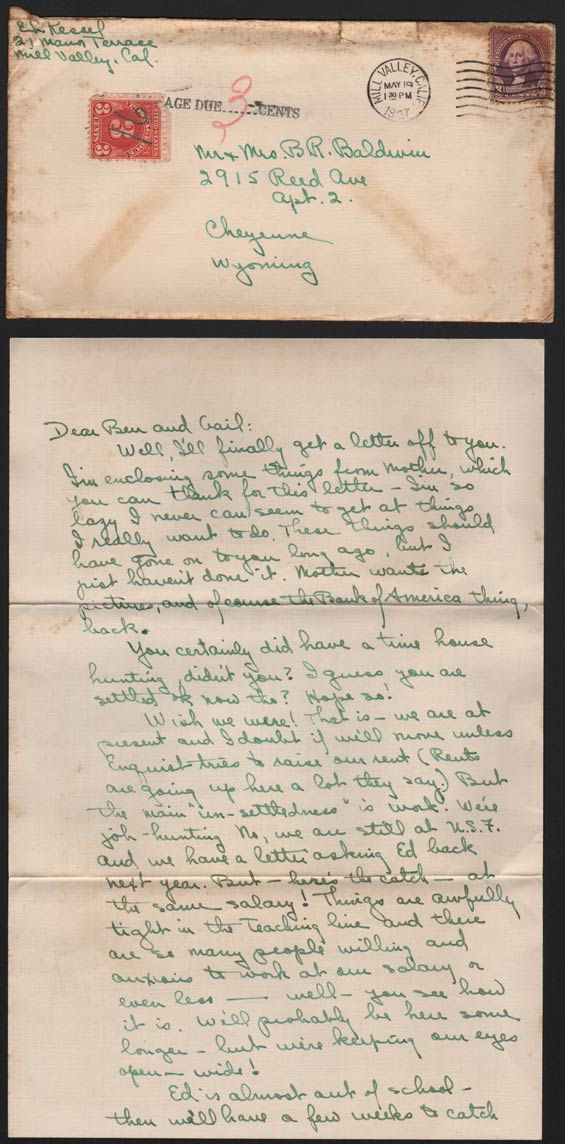 E.L. Kessel
21 Mann Terrace
Mill Valley, Cal.
AGE DUE 3 CENTS
MILL VALLEY, CALIF.
MAY 19
1 30 PM
1937
3
Mr & Mrs. B.R. Baldwin
2915 Reed Ave
Apt. 2.
Cheyenne
Wyoming
Dear Ben and Gail:
Well, I'll finally get a letter off to you.
I'm enclosing some things from Mother, which
you can thank for this letter – I'm so
lazy I never can seem to get at things
I really want to do. These things should
have gone on to you long ago, but I
just haven't done it. Mother wants the
pictures, and of course the Bank of America thing,
back.
You certainly did have a time house
hunting, didn't you? I guess you are
settled ok now tho? Hope so!
Wish we were! That is – we are at
present and I doubt if we'll move unless
Enquist tries to raise our rent (Rents
are going up here a lot they say.) But
the main "un-settledness" is work. We're
job-hunting. No, we are still at U.S.F.
and we have a letter asking Ed back
next year. But – here's the catch – at
the same salary! Things are awfully
tight in the teaching line and there
are so many people willing and
anxious to work at our salary or
even less — well – you see how
it is. We'll probably be here some
longer – but we're keeping our eyes
open – wide!
Ed is almost out of school –
then we'll have a few weeks to catch